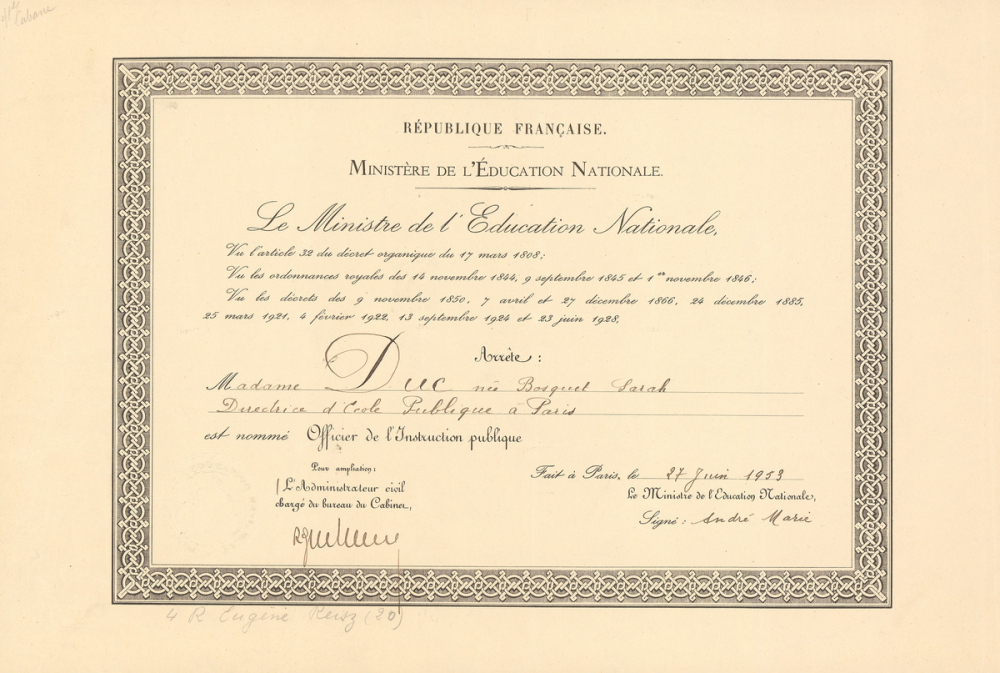 Cabane
RÉPUBLIQUE FRANÇAISE.
MINISTÈRE DE L'ÉDUCATION NATIONALE.
Le Ministre de l'Education Nationale,
Vu l'article 32 du décret organique du 17 mars 1808;
Vu les ordonnances royales des 14 novembre 1844, 9 septembre 1845 et 1er novembre 1846;
Vu les décrets des 9 novembre 1850, 7 avril et 27 décembre 1866, 24 décembre 1885,
25 mars 1921, 4 février 1922, 13 septembre 1924 et 23 juin 1928,
Arrête :
Madame Duc née Bosquet Sarah
Directrice d'Ecole Publique à Paris
est nommé Officier de l'Instruction publique
Pour ampliation:
L'Administrateur civil
chargé du bureau du Cabinet,
Fait à Paris, le 27 Juin 1953
Le Ministre de l'Education Nationale,
Signé : André Marie
4 R Eugène Reisz (20)